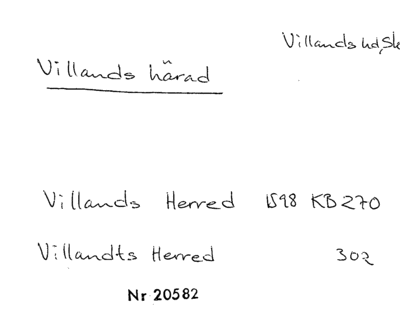 Villands hd, Sk
Villands härad
Villands Herred 1598 KB 270
Villandts Herred 302
Nr 20582